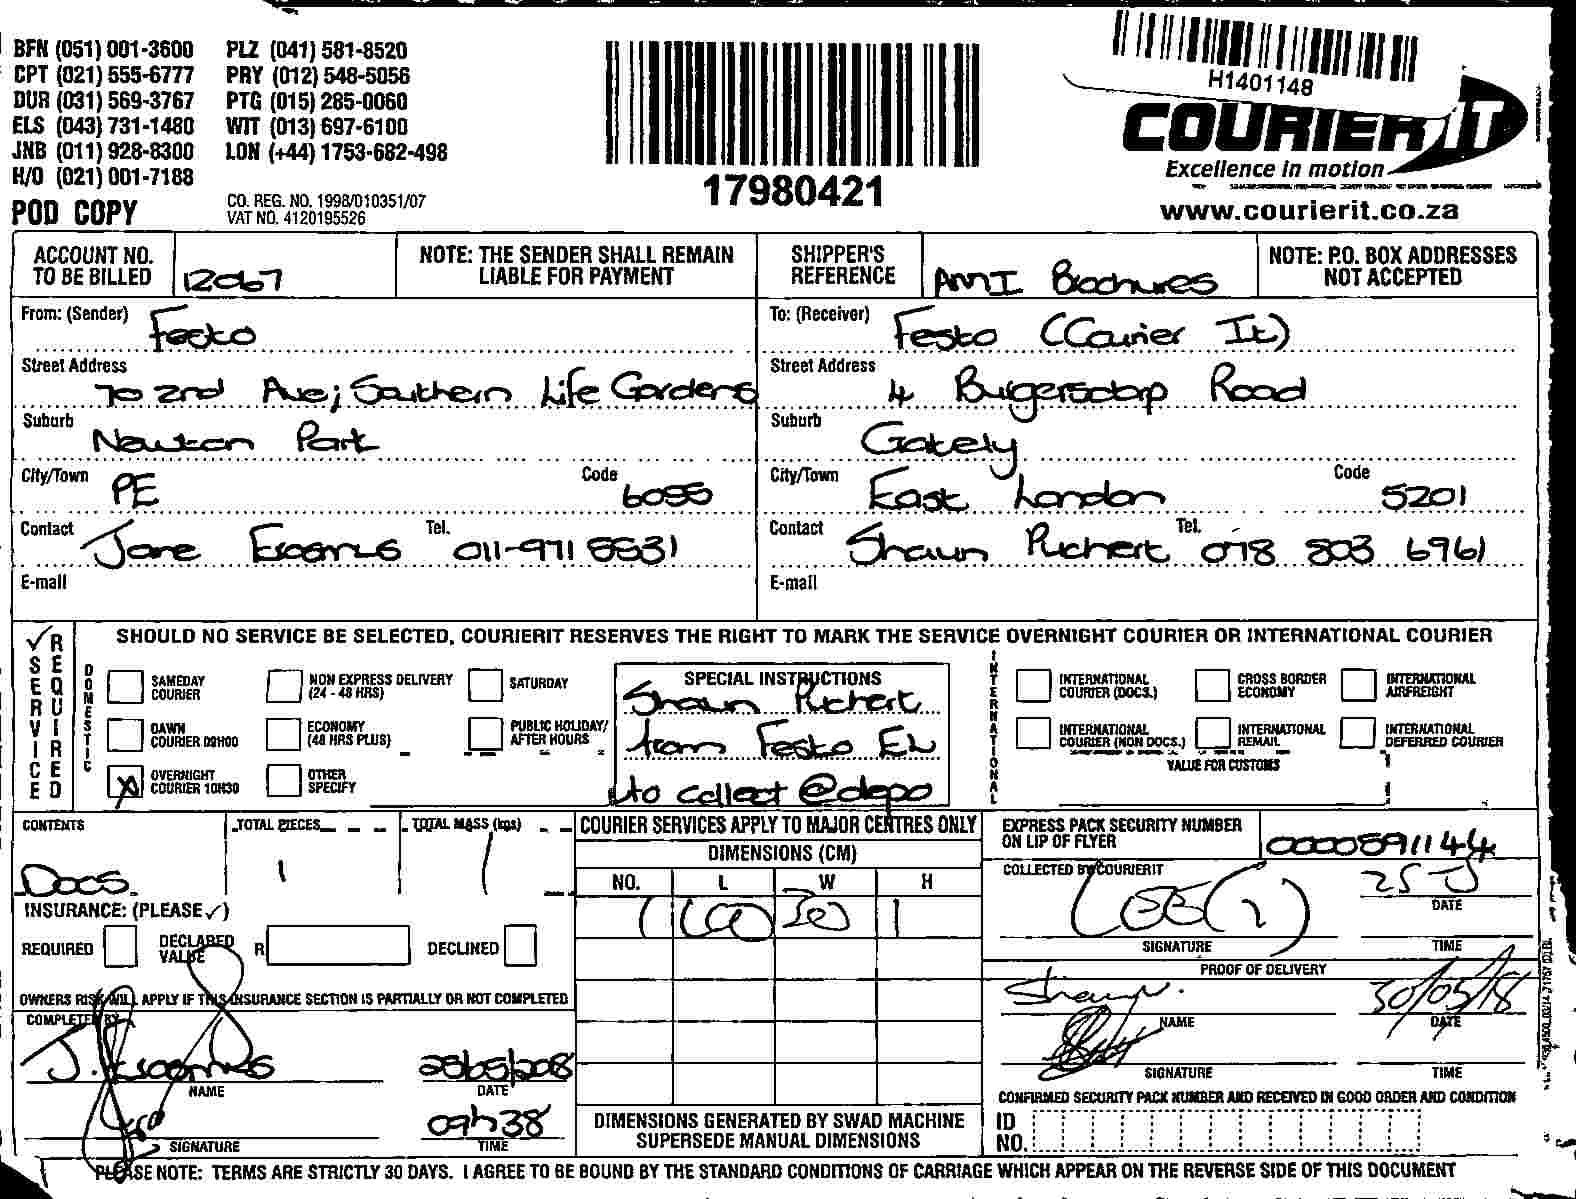 BFN (051) 001-3600 PLZ (041) 581-8520
CPT (021) 555-6777 PRY (012) 548-5056
DUR (031) 569-3767 PTG (015) 285-0060
ELS (043) 731-1480 WIT (013) 697-6100
JNB (011) 928-8300 LON (+44) 1753-682-498
H/O (021) 001-7188
POD COPY
CO. REG. NO. 1998/010351/07
VAT NO. 4120195526
17980421
H1401148
COURIER IT
Excellence in motion
www.courierit.co.za
ACCOUNT NO. TO BE BILLED 12067
NOTE: THE SENDER SHALL REMAIN LIABLE FOR PAYMENT
SHIPPER'S REFERENCE AMI Brochures
NOTE: P.O. BOX ADDRESSES NOT ACCEPTED
From: (Sender) Festo
Street Address 70 2nd Ave; Southern Life Gardens
Suburb Newton Park
City/Town PE Code 6055
Contact Jane Erasmus Tel. 011-971 5531
E-mail
To: (Receiver) Festo (Courier It)
Street Address 4 Burgersdorp Road
Suburb Gately
City/Town East London Code 5201
Contact Shaun Puchert Tel. 078 803 6961
E-mail
SERVICE REQUIRED
SHOULD NO SERVICE BE SELECTED, COURIERIT RESERVES THE RIGHT TO MARK THE SERVICE OVERNIGHT COURIER OR INTERNATIONAL COURIER
DOMESTIC
SAMEDAY COURIER
NON EXPRESS DELIVERY (24 - 48 HRS)
SATURDAY
DAWN COURIER 09H00
ECONOMY (48 HRS PLUS)
PUBLIC HOLIDAY/ AFTER HOURS
X OVERNIGHT COURIER 10H30
OTHER SPECIFY
SPECIAL INSTRUCTIONS
Shaun Puchert
from Festo EL
to collect @ depo
INTERNATIONAL
INTERNATIONAL COURIER (DOCS.)
CROSS BORDER ECONOMY
INTERNATIONAL AIRFREIGHT
INTERNATIONAL COURIER (NON DOCS.)
INTERNATIONAL REMAIL
INTERNATIONAL DEFERRED COURIER
VALUE FOR CUSTOMS
CONTENTS TOTAL PIECES TOTAL MASS (kgs)
Docs. 1 1
INSURANCE: (PLEASE ✓)
REQUIRED DECLARED VALUE R DECLINED
OWNERS RISK WILL APPLY IF THIS INSURANCE SECTION IS PARTIALLY OR NOT COMPLETED
COMPLETED BY
J. Erasmus 25/05/2018
NAME DATE
09h38
SIGNATURE TIME
COURIER SERVICES APPLY TO MAJOR CENTRES ONLY
DIMENSIONS (CM)
NO. L W H
1 30 1
DIMENSIONS GENERATED BY SWAD MACHINE SUPERSEDE MANUAL DIMENSIONS
EXPRESS PACK SECURITY NUMBER ON LIP OF FLYER 00000591144
COLLECTED BY COURIERIT
25
DATE
SIGNATURE TIME
PROOF OF DELIVERY
30/05/18
NAME DATE
SIGNATURE TIME
CONFIRMED SECURITY PACK NUMBER AND RECEIVED IN GOOD ORDER AND CONDITION
ID NO.
PLEASE NOTE: TERMS ARE STRICTLY 30 DAYS. I AGREE TO BE BOUND BY THE STANDARD CONDITIONS OF CARRIAGE WHICH APPEAR ON THE REVERSE SIDE OF THIS DOCUMENT